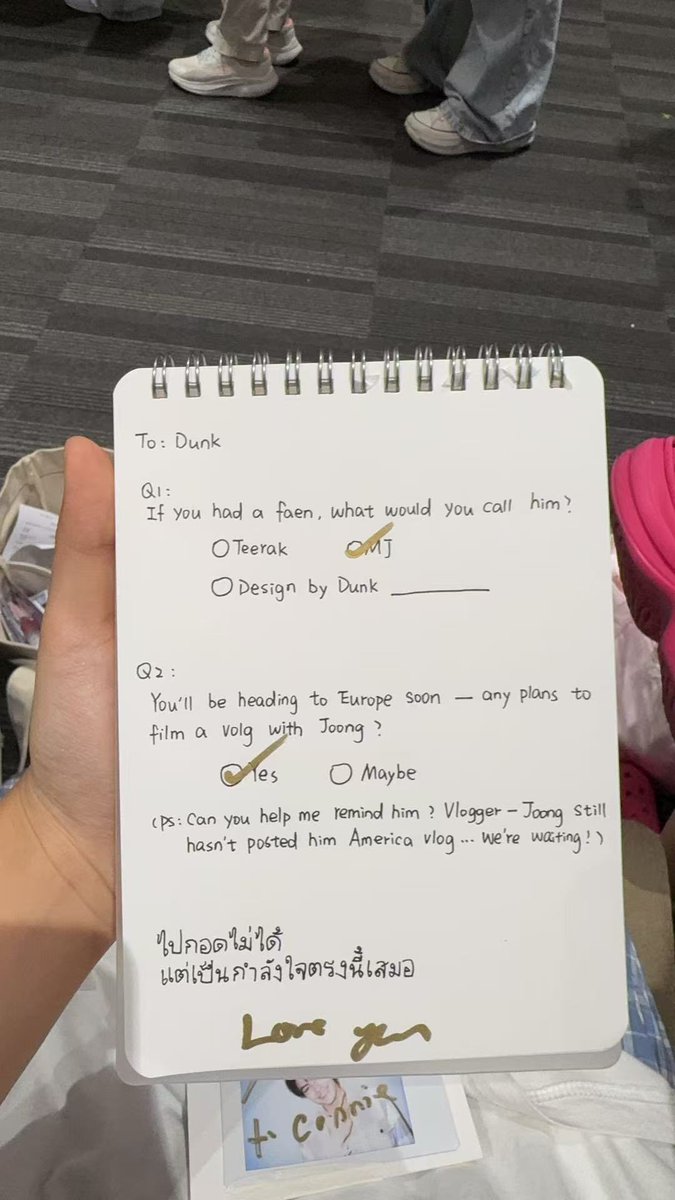 To: Dunk
Q1:
If you had a faen, what would you call him?
Teerak MJ
Design by Dunk
Q2:
You'll be heading to Europe soon — any plans to
film a volg with Joong?
Yes Maybe
(PS: Can you help me remind him? Vlogger-Joong still
hasn't posted him America vlog... we're waiting!)
ไปกอดไม่ได้
แต่เป็นกำลังใจตรงนี้เสมอ
Love you
to Connie